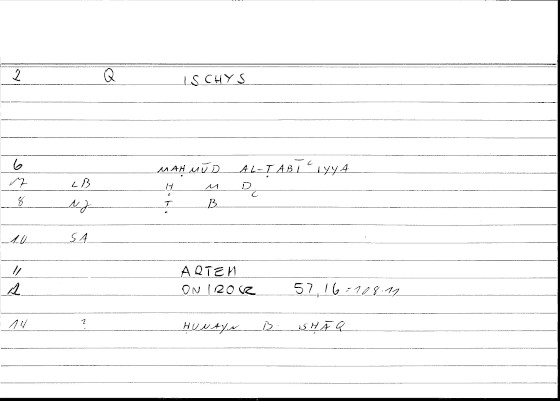 2 Q ISCHYS
6 MAḤMŪD AL-ṬABĪʿIYYA
7 LB Ḥ M D
8 NJ Ṭ B
10 SA
11 ARTEM
12 ONIROCR 57,16 = 108.11
14 ? ḤUNAYN B ISḤĀQ